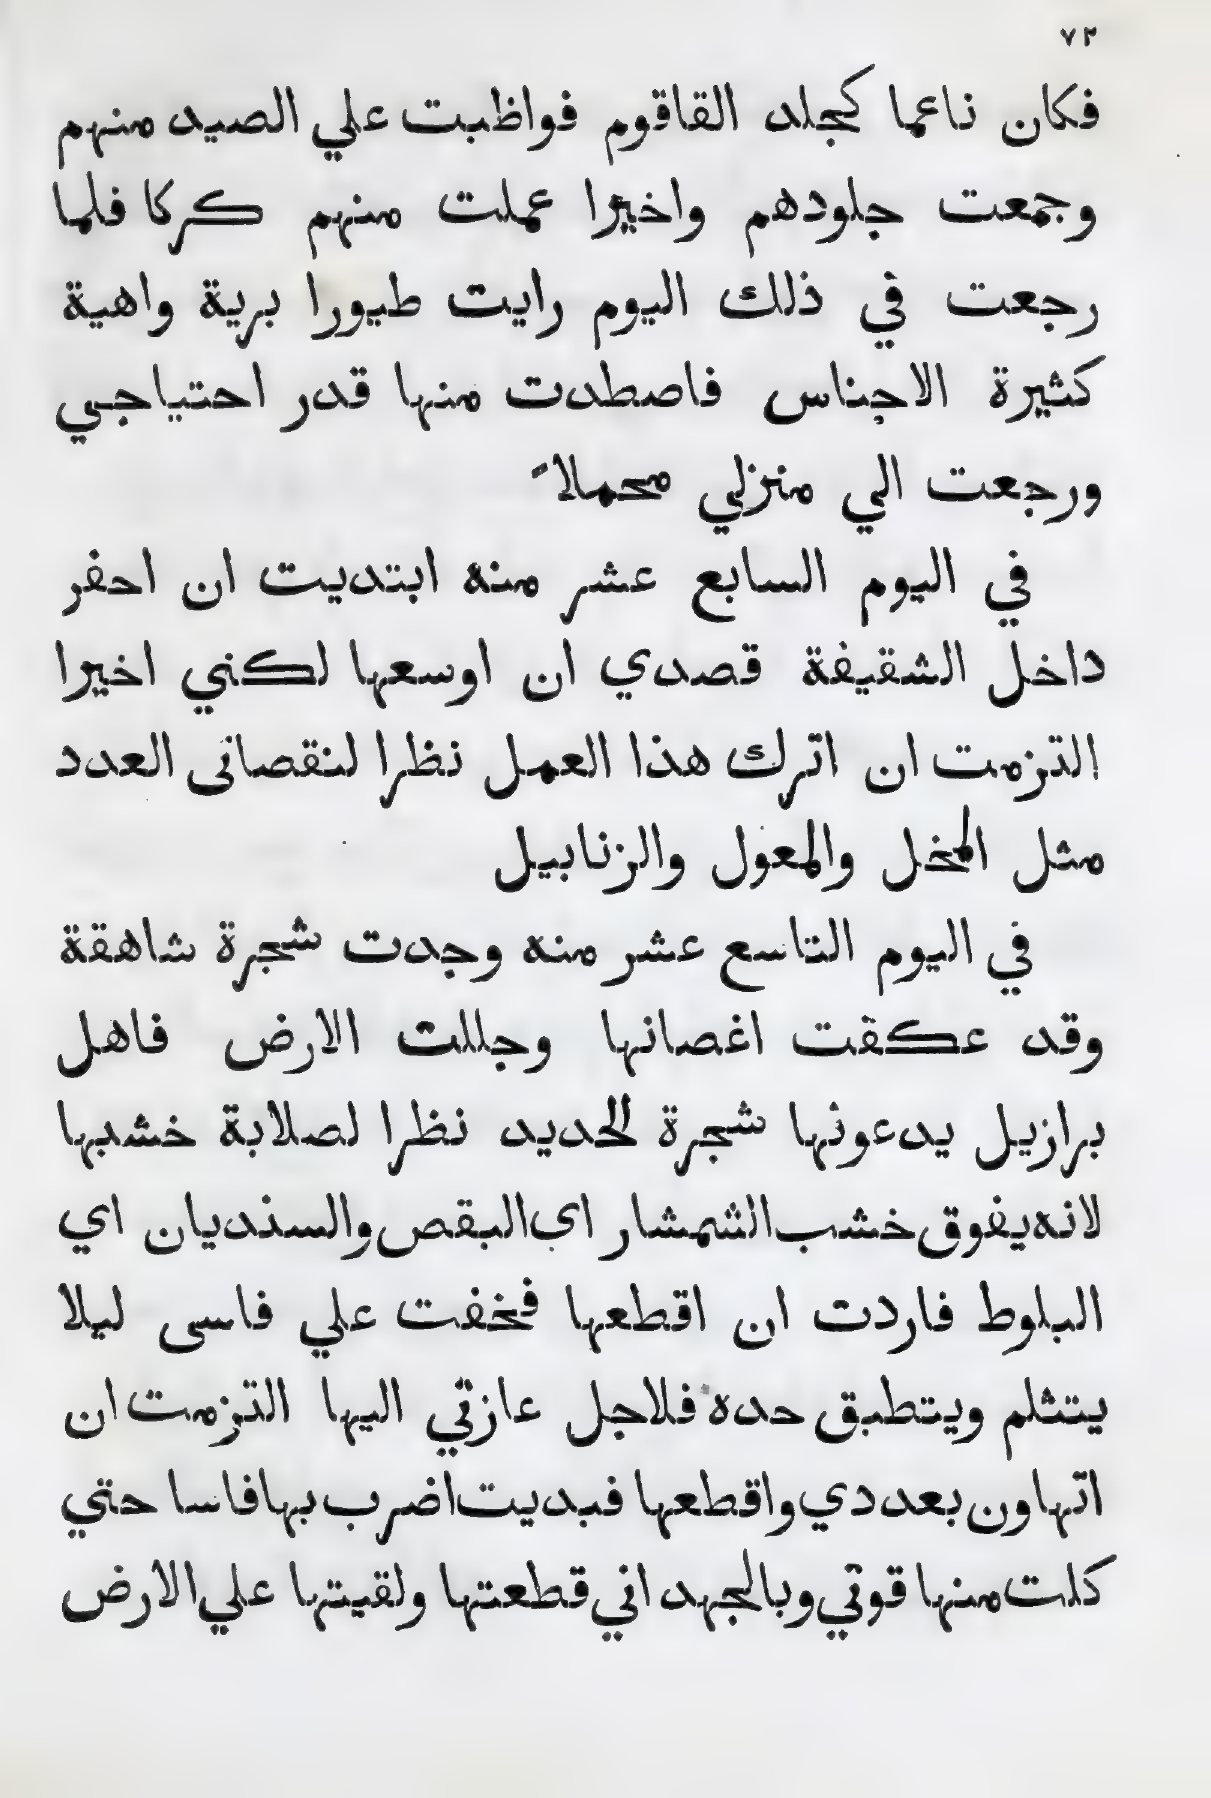 ٧٢
فكان ناعما كجلد القاقوم فواظبت علي الصيد منهم
وجمعت جلودهم واخيرا عملت منهم كركا فلما
رجعت في ذلك اليوم رايت طيورا برية واهية
كثيرة الاجناس فاصطدت منها قدر احتياجي
ورجعت الي منزلي محملاً
في اليوم السابع عشر منه ابتديت ان احفر
داخل الشقيفة قصدي ان اوسعها لكني اخيرا
التزمت ان اترك هذا العمل نظرا لنقصانى العدد
مثل المخل والمعول والزنابيل
في اليوم التاسع عشر منه وجدت شجرة شاهقة
وقد عكقت اغصانها وجللت الارض فاهل
برازيل يدعونها شجرة الحديد نظرا لصلابة خشبها
لانه يفوق خشب الشمشار اى البقص والسنديان اي
البلوط فاردت ان اقطعها فخفت علي فاسى ليلا
يتثلم ويتطبق حده فلاجل عازتي اليها التزمت ان
اتهاون بعددي واقطعها فبديت اضرب بها فاسا حتي
كلت منها قوتي وبالجهد اني قطعتها ولقيتها علي الارض